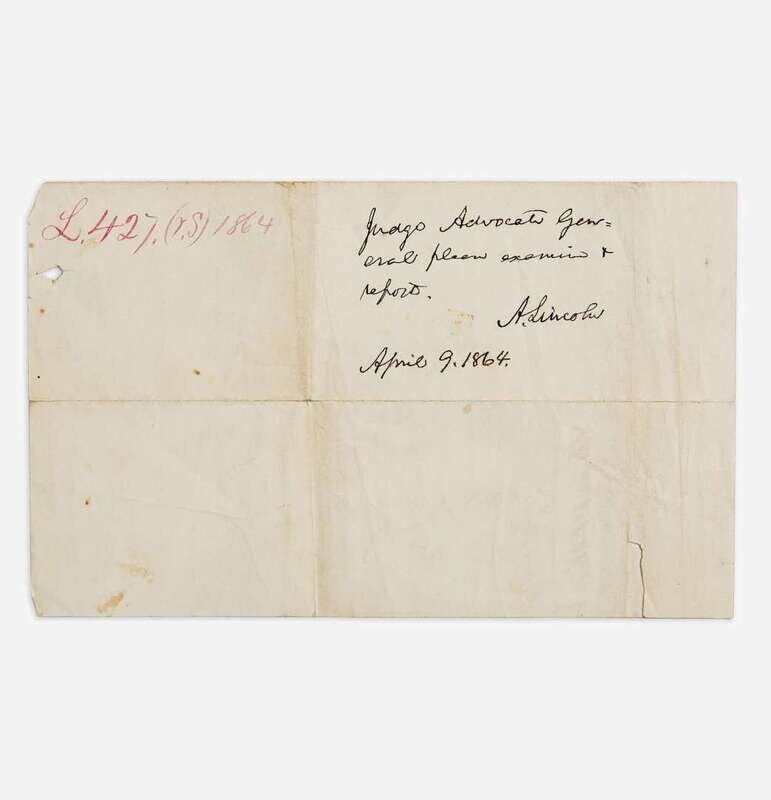 L. 427. (r.S) 1864
Judge Advocate Gen=
eral please examine &
report.
A. Lincoln
April 9. 1864.